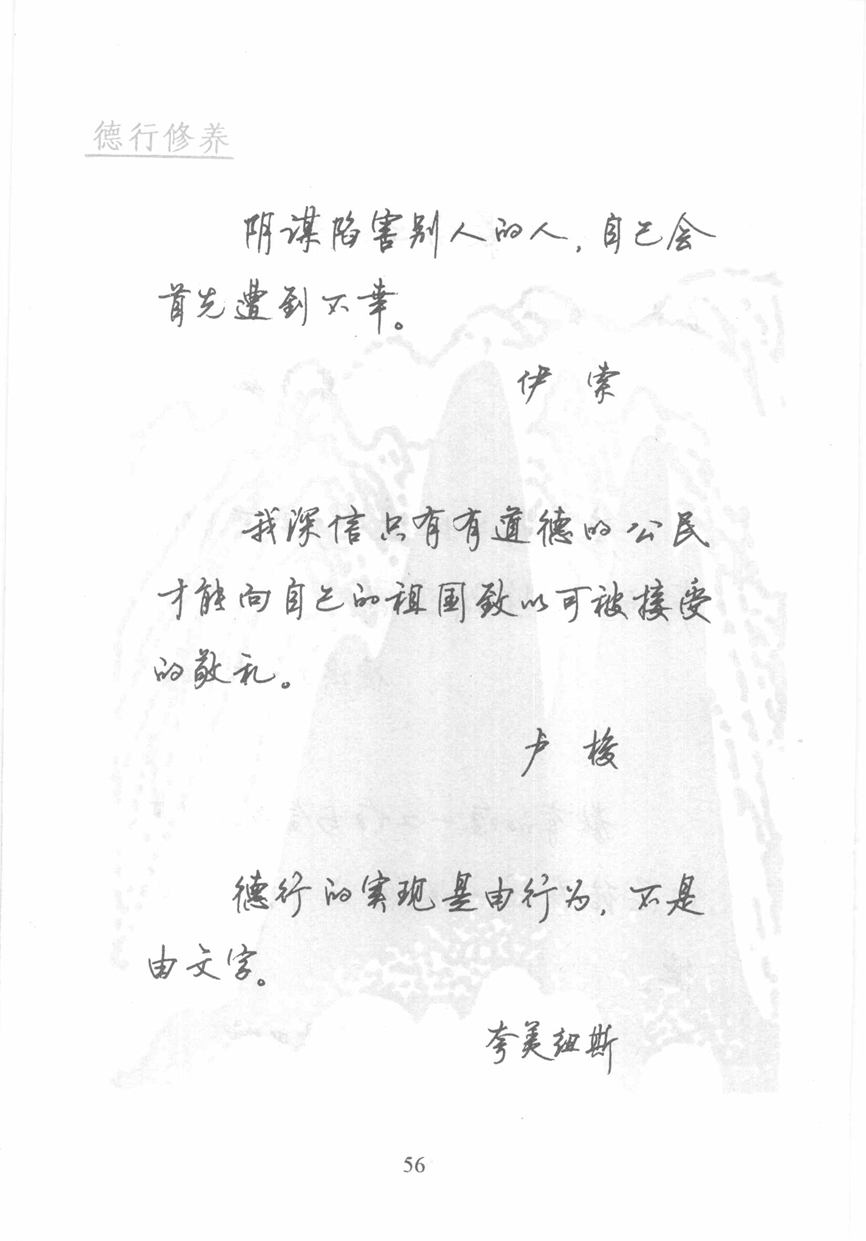 德行修养
阴谋陷害别人的人，自己会
首先遭到不幸。
伊 索
我深信只有有道德的公民
才能向自己的祖国致以可被接受
的敬礼。
卢 梭
德行的实现是由行为，不是
由文字。
夸美纽斯
56